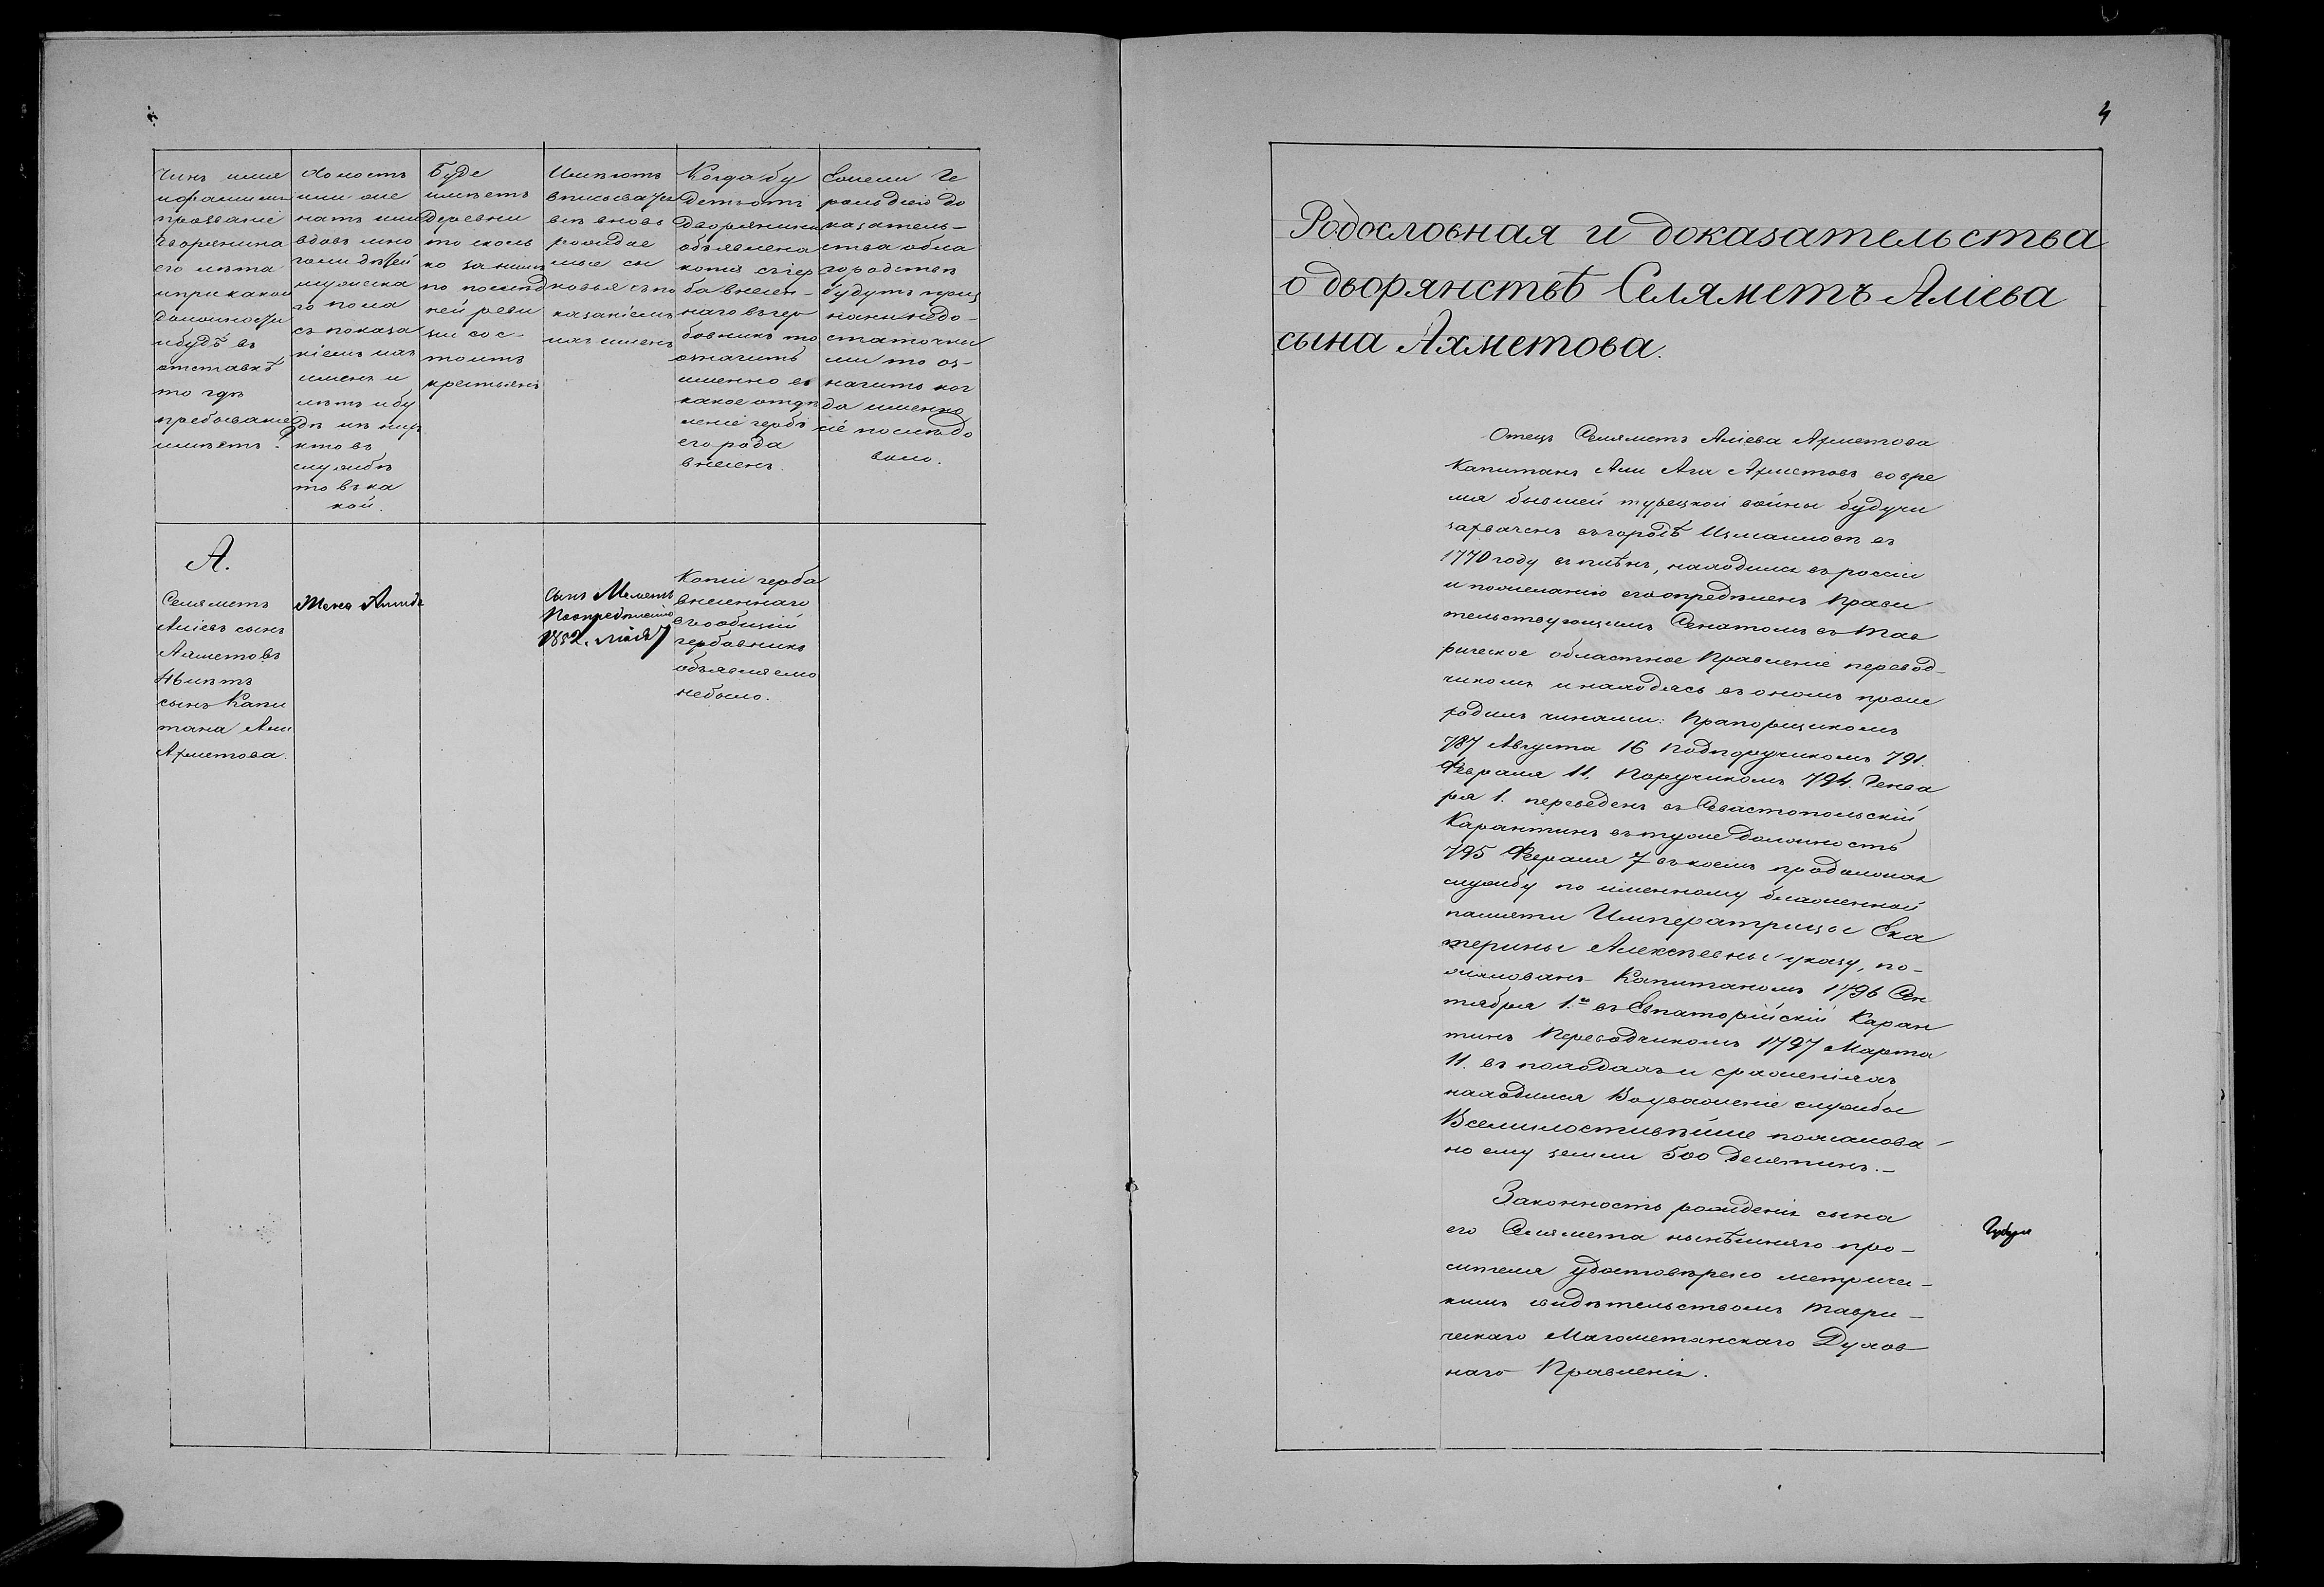 Чинъ имя
и фамилія
прозваніе
дворянина
его лѣта
и при какой
должности
и будѣ въ
отставкѣ
то гдѣ
пребываніе
имѣетъ.
Холостъ
или же
натъ или
вдовъ мно
голи дѣтей
мужеска
го пола
съ показа
ніемъ ихъ
именъ и
лѣтъ и бу
дѣ изъ нихъ
кто въ
службѣ
то въ ка
кой.
Буде
имѣетъ
деревни
то сколь
ко за нимъ
по послѣд
ней реви
зіи сос-
тоитъ
крестьянъ
Имѣютъ
вписыватся
всѣ вновь
рожда е
мые сы
новья съ по
казаніемъ
ихъ именъ
Когда бу
детъ отъ
дворянина
объявлена
копія съ гер
ба внесен-
наго въ гер
бовникъ то
означить
именно въ
какое отдѣ
леніе гербъ
его рода
внесенъ.
Если Ге
рольдіею до
казатель-
ства о бла
городствѣ
будутъ приз
наны недо-
статочны
ми то оз-
начить ког
да именно
сіе послѣдо
вало.
А.
Селяметъ
Аліевъ сынъ
Ахметовъ
46 лѣтъ
сынъ Капи
тана Али
Ахметова.
Жена
Сынъ Меметъ
По опредѣленію
1852.
Копіи герба
внесеннаго
въ общій
гербовникъ
объявляемо
не было.
4
Родословная и доказательства
о дворянствѣ Селяметъ Аліева
сына Ахметова.
Отецъ Селяметъ Аліева Ахметова
Капитанъ Али Ага Ахметовъ во вре
мя бывшей турецкой войны будучи
захваченъ въ городѣ Измаиловѣ въ
1770 году въ плѣнъ, находился въ россіи
и по желанію его опредѣленъ Прави
тельствующимъ Сенатомъ въ Тав
рическое областное Правленіе перевод-
чикомъ и находясь въ ономъ проис
ходилъ чинами: Прапорщикомъ
787 Августа 16 Подпоручикомъ 791.
Февраля 11. Поручикомъ 794. Генва
ря 1. переведенъ въ Севастопольскій
Карантинъ въ туже должность
795 Февраля 7 въ коемъ продолжая
службу по именному блаженной
памяти Императрицы Ека
терины Алексѣевны указу, по-
жалованъ Капитаномъ 1796 Сен
тября 1.го въ Евпаторійскій Каран
тинъ Переводчикомъ 1797 Марта
11. въ походахъ и сраженіяхъ
находился Во уваженіе службы
Всемилостивѣйше пожалова-
но ему земли 500 десятинъ.-
Законность рожденія сына
его Селямета нынѣшняго про-
сителя удостовѣрено метриче-
кимъ свидѣтельствомъ Таври-
ческаго Магометанскаго Духов
наго Правленія.